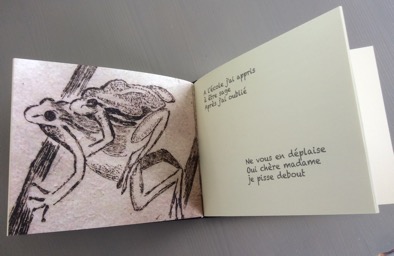 A l'école j'ai appris
à être sage
Après j'ai oublié
Ne vous en déplaise
Oui chère madame
je pisse debout